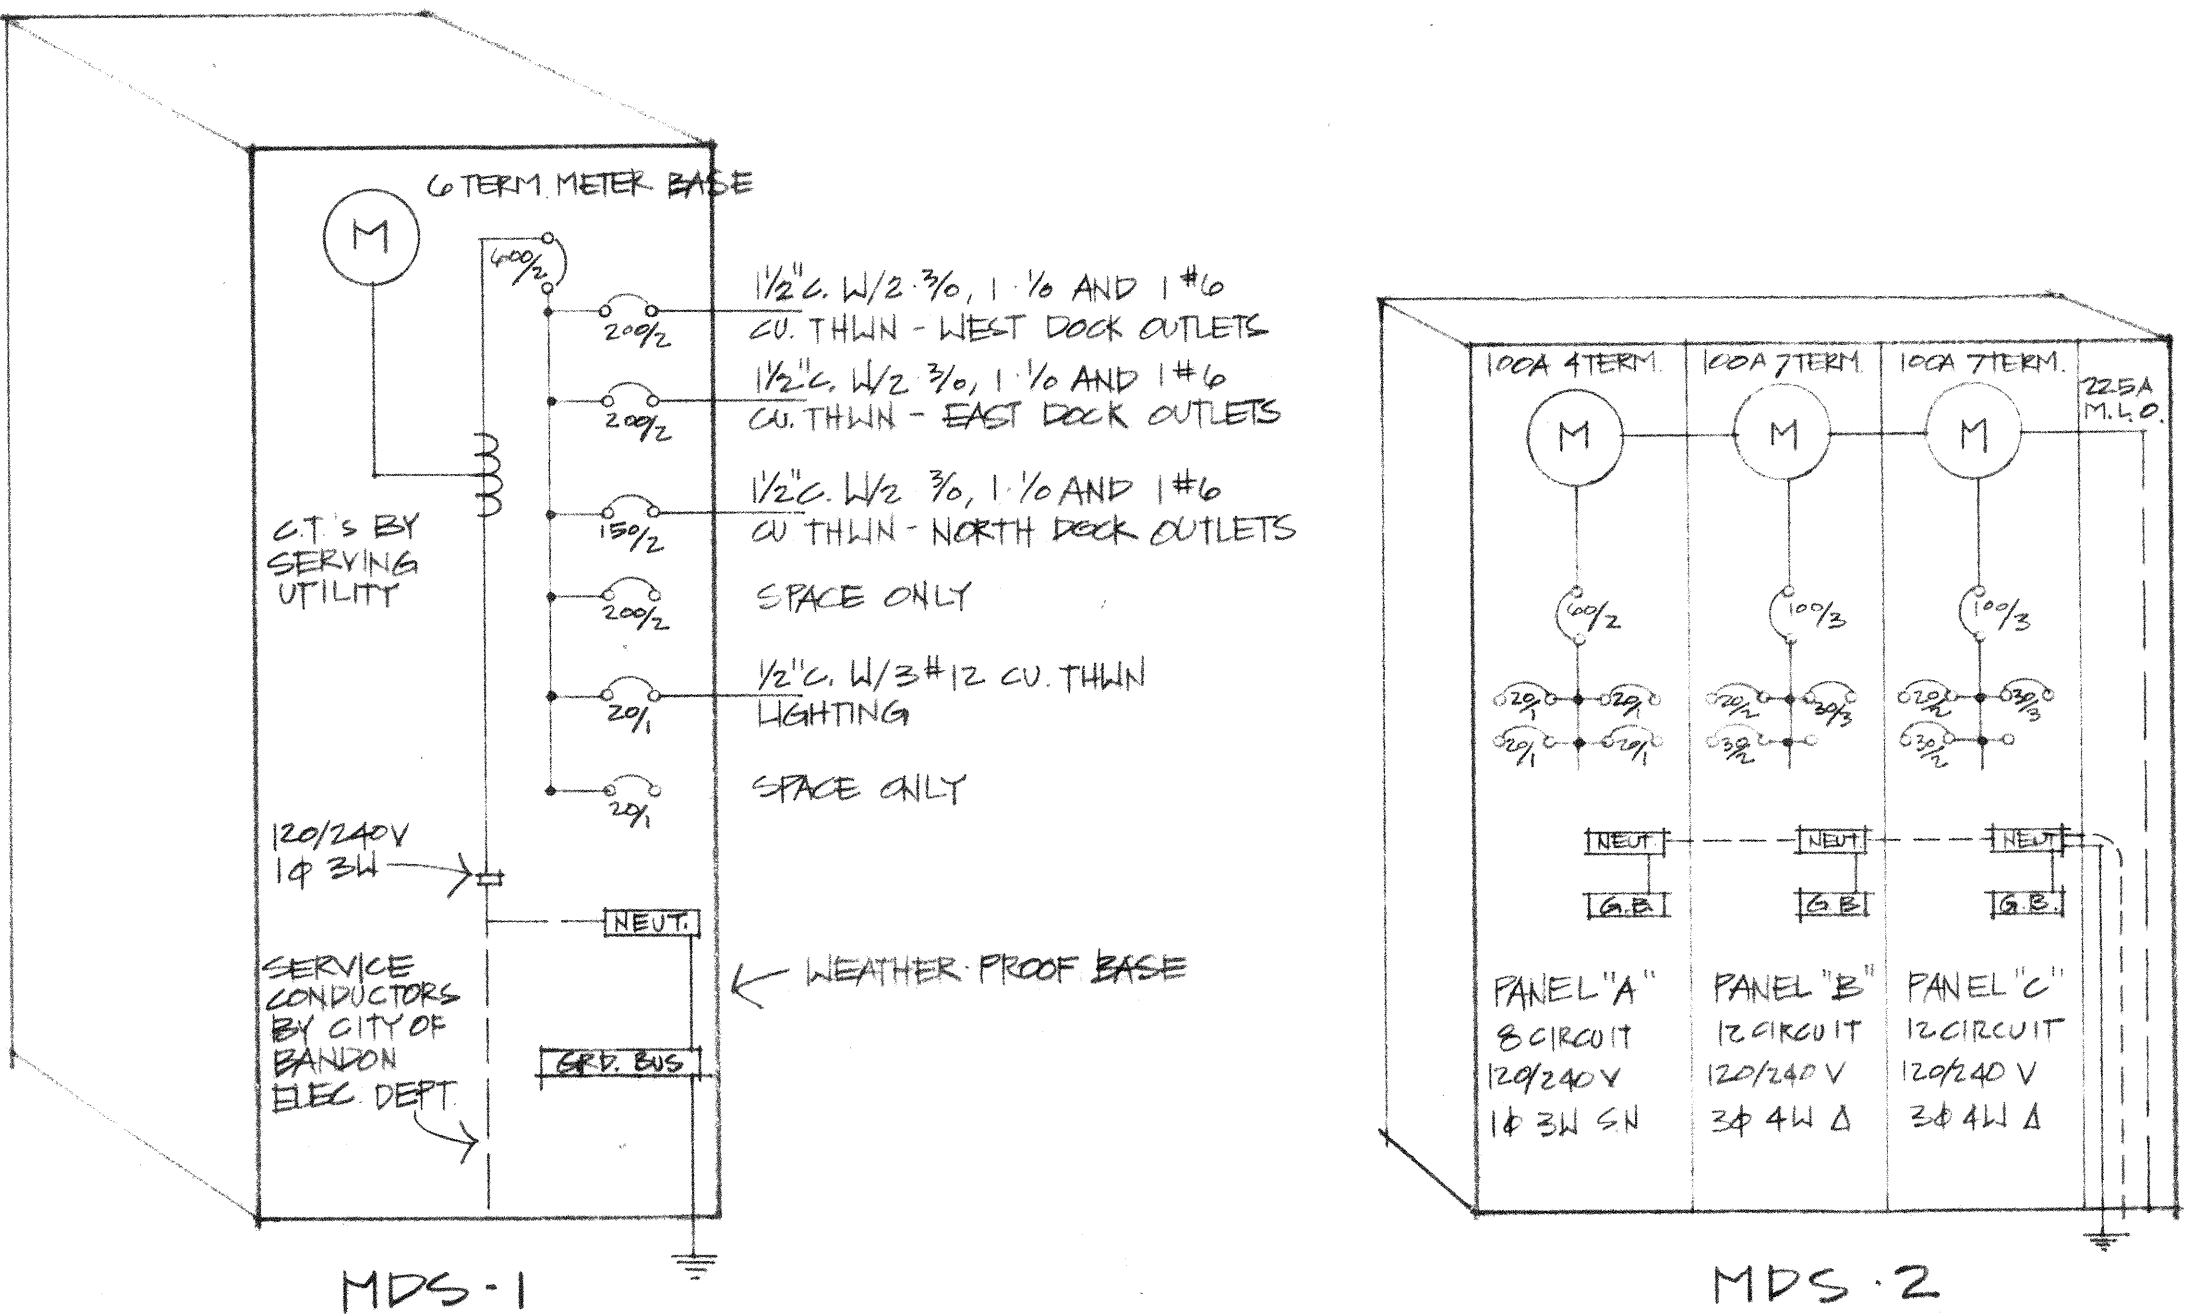 6 TERM. METER BASE
M
600/2
1½"C. W/2·3/0, 1·1/0 AND 1 #6
CU. THWN - WEST DOCK OUTLETS
200/2
1½"C. W/2 3/0, 1·1/0 AND 1 #6
CU. THWN - EAST DOCK OUTLETS
200/2
1½"C. W/2 3/0, 1·1/0 AND 1 #6
CU THWN - NORTH DOCK OUTLETS
150/2
C.T.'S BY
SERVING
UTILITY
SPACE ONLY
200/2
½"C. W/3 #12 CU. THWN
LIGHTING
20/1
SPACE ONLY
20/1
120/240V
1ϕ 3W
NEUT.
SERVICE
CONDUCTORS
BY CITY OF
BANDON
ELEC. DEPT.
WEATHER·PROOF BASE
GRD. BUS
MDS-1
100A 4 TERM.
100A 7 TERM.
100A 7 TERM.
225A
M.L.O.
M
M
M
60/2
100/3
100/3
20/1 20/1
20/2 30/3
20/2 30/3
20/1 20/1
30/2
30/2
NEUT
NEUT
NEUT
G.B.
G.B
G.B.
PANEL "A"
8 CIRCUIT
120/240 V
1ϕ 3W S.N
PANEL "B"
12 CIRCUIT
120/240 V
3ϕ 4W Δ
PANEL "C"
12 CIRCUIT
120/240 V
3ϕ 4W Δ
MDS·2